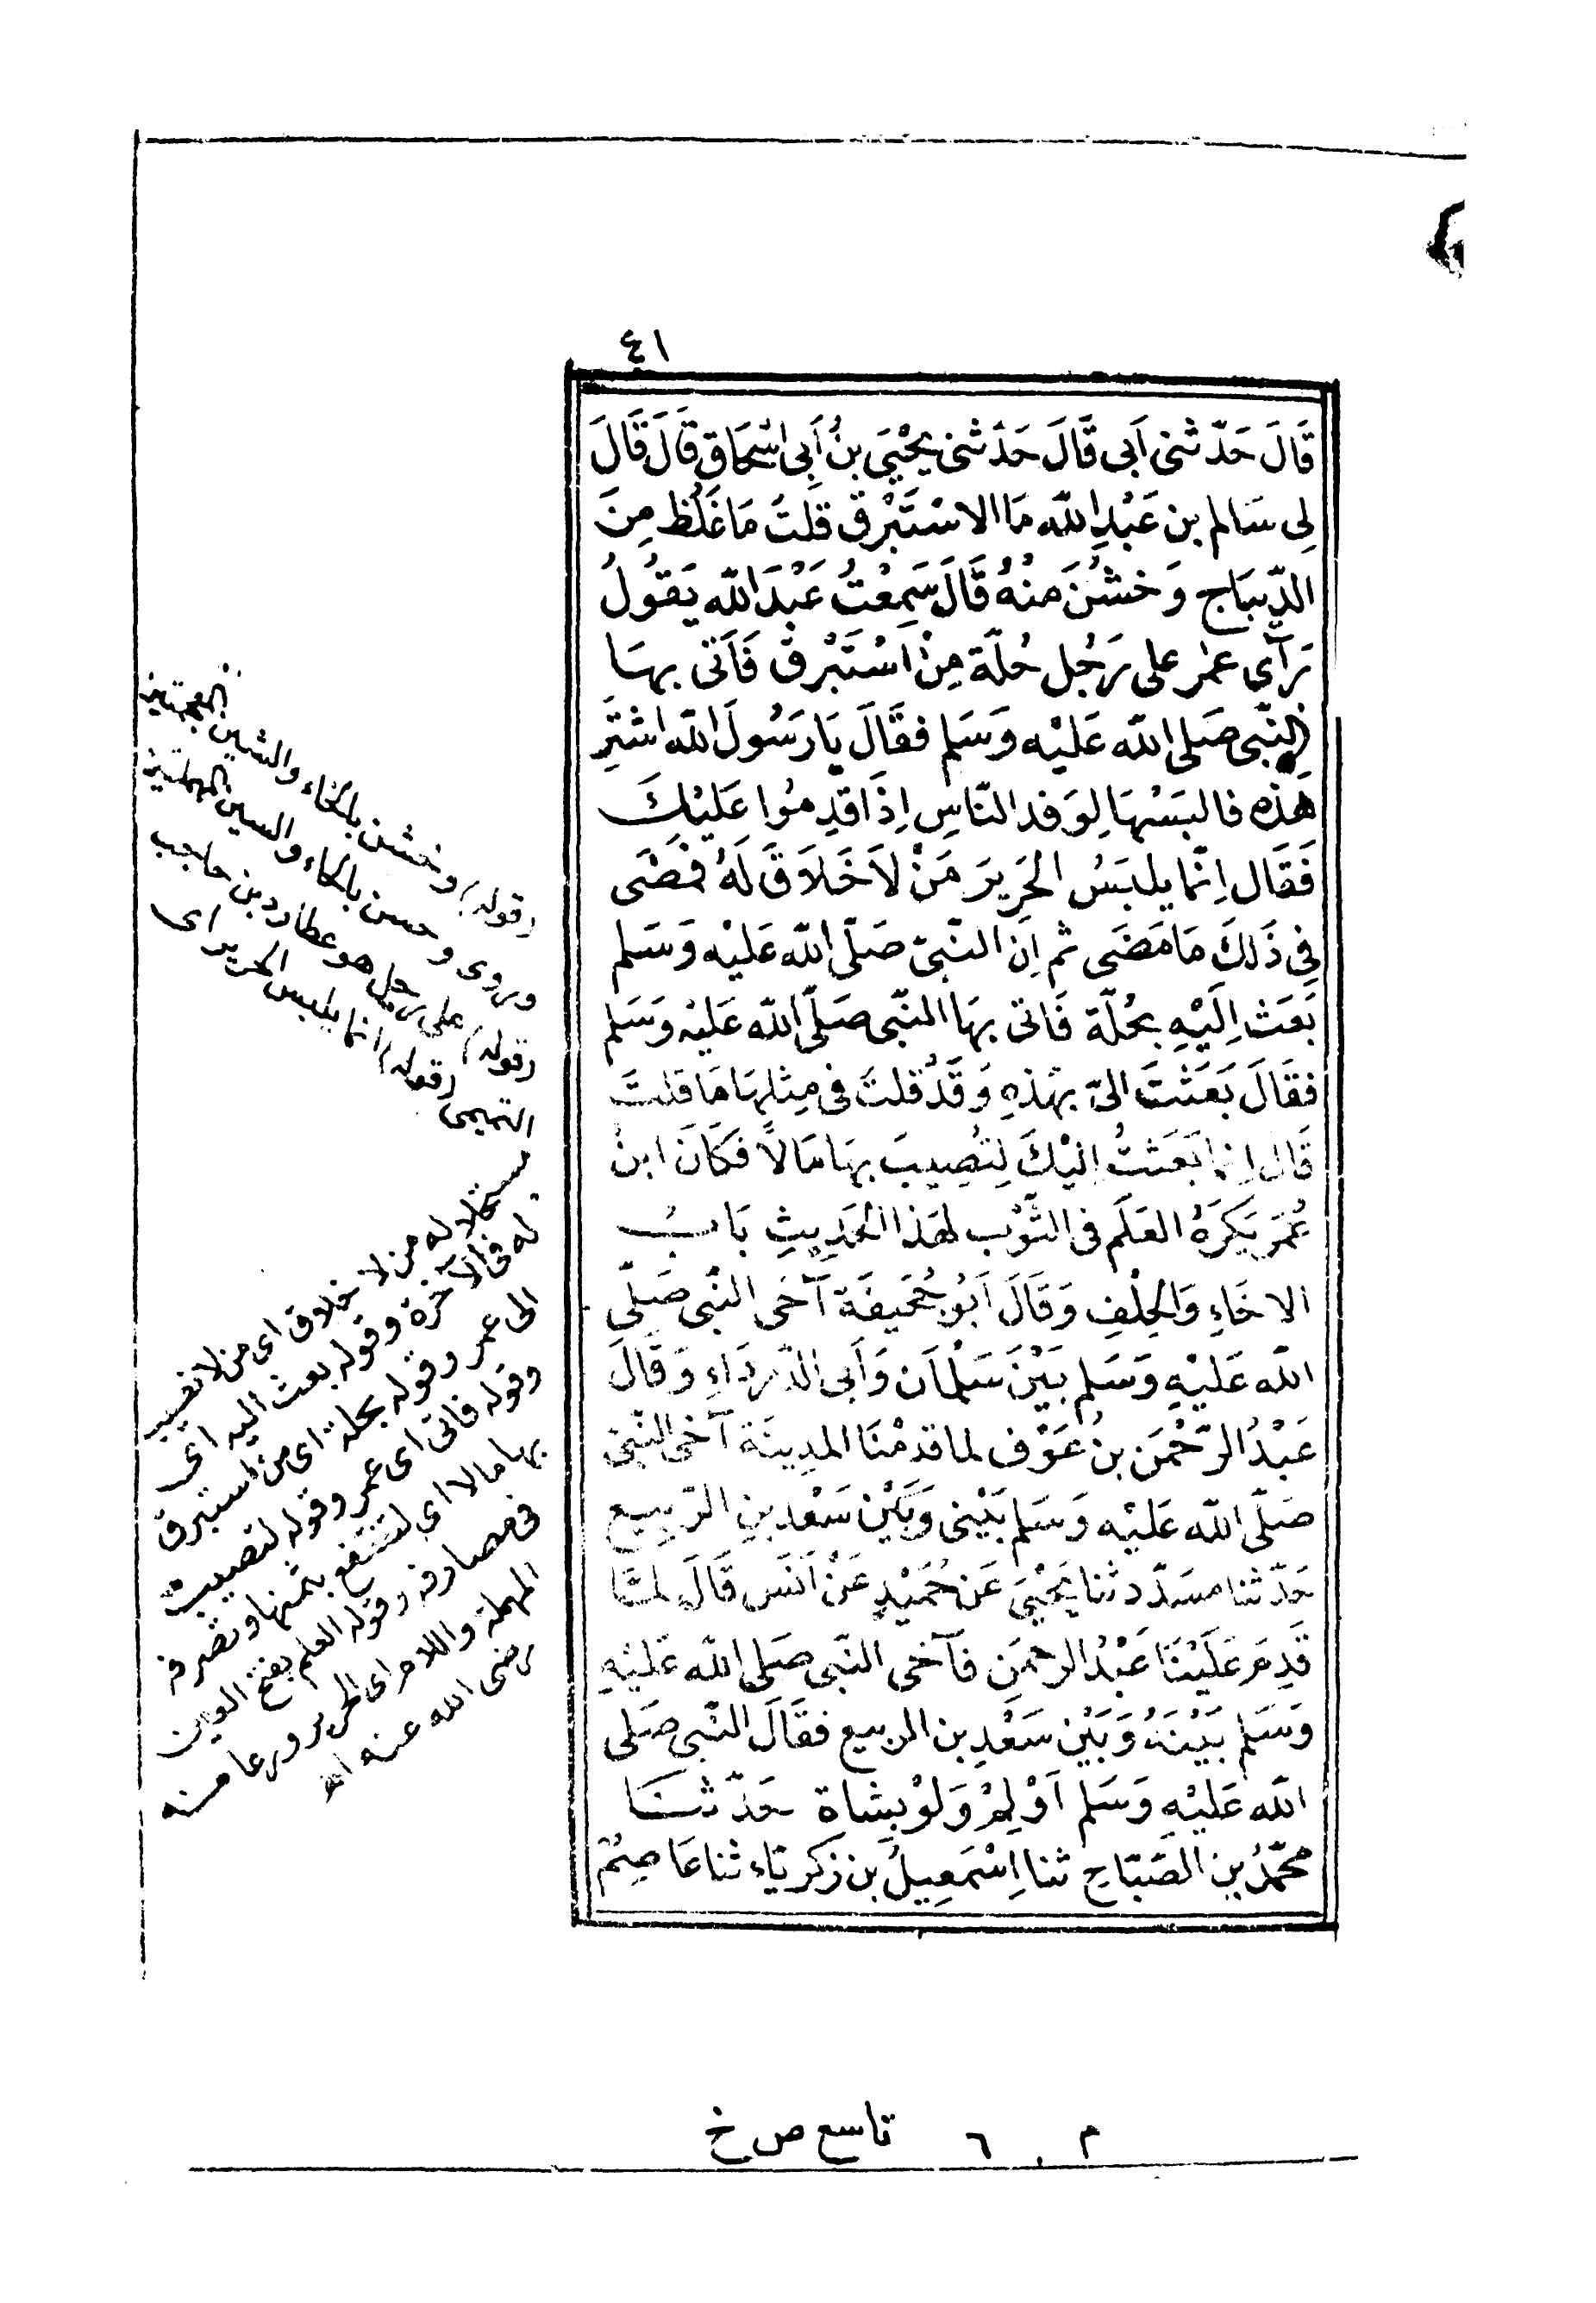 ٤١
قَالَ حَدّثنى اَبى قَالَ حَدّثنى يَحْيَى بنُ أَبِى اسْحَاقِ قَالَ قَالَ
لِى سَالم بن عَبْدِ اللّه مَا الاسْتَبْرق قلتُ مَا غَلُظ مِنَ
الدّيبَاج وَخشُنَ منْهُ قَالَ سَمِعْتُ عَبْدَ اللّه يَقُولُ
رَآى عمر على رَجُل حُلّة مِنْ اسْتَبْرق فَاَتى بهَا
النّبى صَلى اللّه عَليْه وَسَلم فقَالَ يَا رَسُولَ اللّه اشْتَرِ
هَذه فالبَسْهَا لِوَفد النّاسِ اِذَا قدِمُوا عَليْكَ
فَقَال اِنّما يلبَسُ الحَرِيرَ مَنْ لاَ خَلاَقَ لَهُ فمَضَى
فِى ذَلكَ مَا مَضَى ثم اِن النّبىّ صَلّى اللّه عَليْه وَسَلم
بَعَث اِلَيْهِ بحُلّة فَاتى بهَا النّبى صَلّى اللّه عَليْه وَسَلم
فقَالَ بَعَثتَ الىّ بهَذهِ وَقَدْ قلتَ فى مِثلِهَا مَا قلتَ
قَال اِنما بَعَثتُ اِليْكَ لِتُصِيبَ بهَا مَالاً فكَانَ ابنُ
عُمَرَ يَكرَهُ العَلَم فى الثّوْب لهَذا الحَدِيثِ بَابُ
الاخَاءِ وَالحِلْفِ وَقَالَ اَبُو جُحَيفَة آخَى النّبى صَلّى
اللّه عَليْهِ وَسَلم بَيْنَ سَلْمَان وَأَبى الدّردَاءِ وَقَالَ
عَبْدُ الرّحْمَن بنُ عَوْف لما قدمْنَا المدِينَة آخى النّبى
صَلّى اللّه عَليْه وَسَلم بَيْنى وَبَيْن سَعْد بن الرّبِيع
حَدّثنا مسَدّد ثنا يَحْيَى عَن حُمَيْدٍ عَنْ اَنَس قَالَ لمّا
قَدِمَ عَلَيْنَا عَبْدُ الرحمَن فآخى النّبى صَلى اللّه عَليْهِ
وَسَلم بَيْنَهُ وَبَيْن سَعْدِ بن الربيع فقَالَ النّبى صَلى
اللّه عَليْهِ وَسَلم اَوْلِمْ وَلَوْ بشَاة حَدّثنَا
محمّدُ بن الصّبّاح ثنا اِسْمَعِيلُ بن زكريّاء ثنا عَاصِمٌ
(قوله) وخشن بالخاء والشين المعجمتين
ويروى وحسن بالحاء والسين المهملتين
(قوله) على رجل هو عطارد بن حاجب
التميمى (قوله) انما يلبس الحرير اى
مستحلا له من لا خلاق اى من لا نصيب
له فى الآخرة وقوله بعث اليه اى
الى عمر وقوله بحلة اى من استبرق
وقوله فاتى اى عمر وقوله لتصيب
بها مالا اى لتنتفع بثمنها وتصرفه
فى مصارفه وقوله العلم بفتح العين
المهملة واللام اى الحرير ورعا منه
رضى الله عنه اه
م ٦ تاسع ص خ